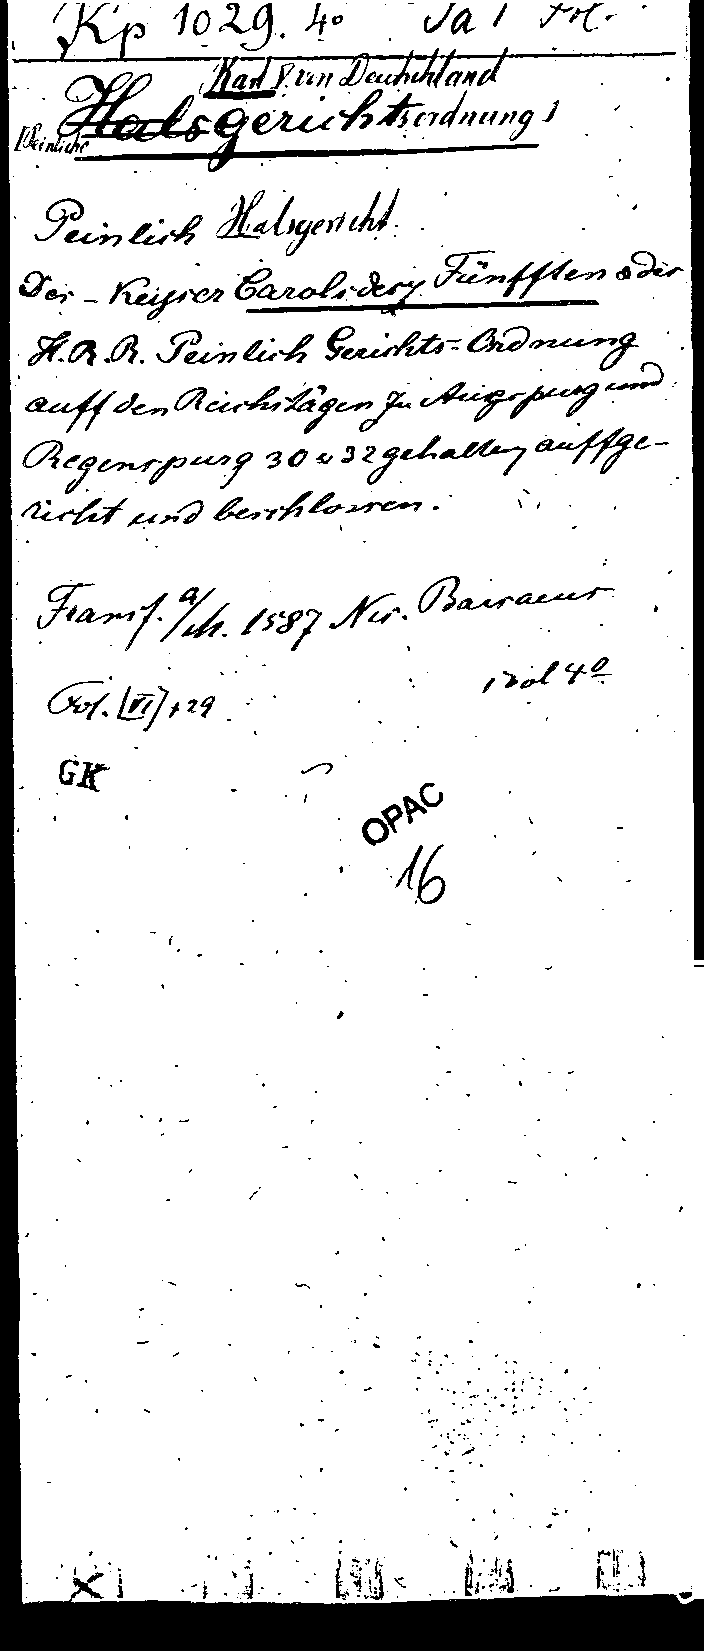 Kp 1029. 4° Ja 1 Fol.
Karl V. von Deutschland
Halsgerichtsordnung
Peinliche
Peinlich Halsgericht
Des - Keyser Carols desz Fünfften oder
H. R. R. Peinlich Gerichts-Ordnung
auff den Reichstägen zu Augspurg und
Regenspurg 30 u 32 gehalten, auffge-
richt und beschlossen.
Frankf. a/M. 1587 Nic. Bassaeus
Fol. [VI] + 29
1 Vol 4°
GK
OPAC
16